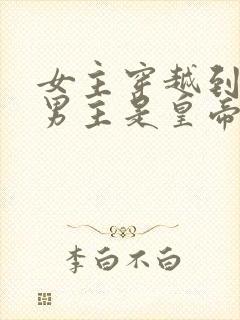 女主穿越到
男主是皇帝
李白不白